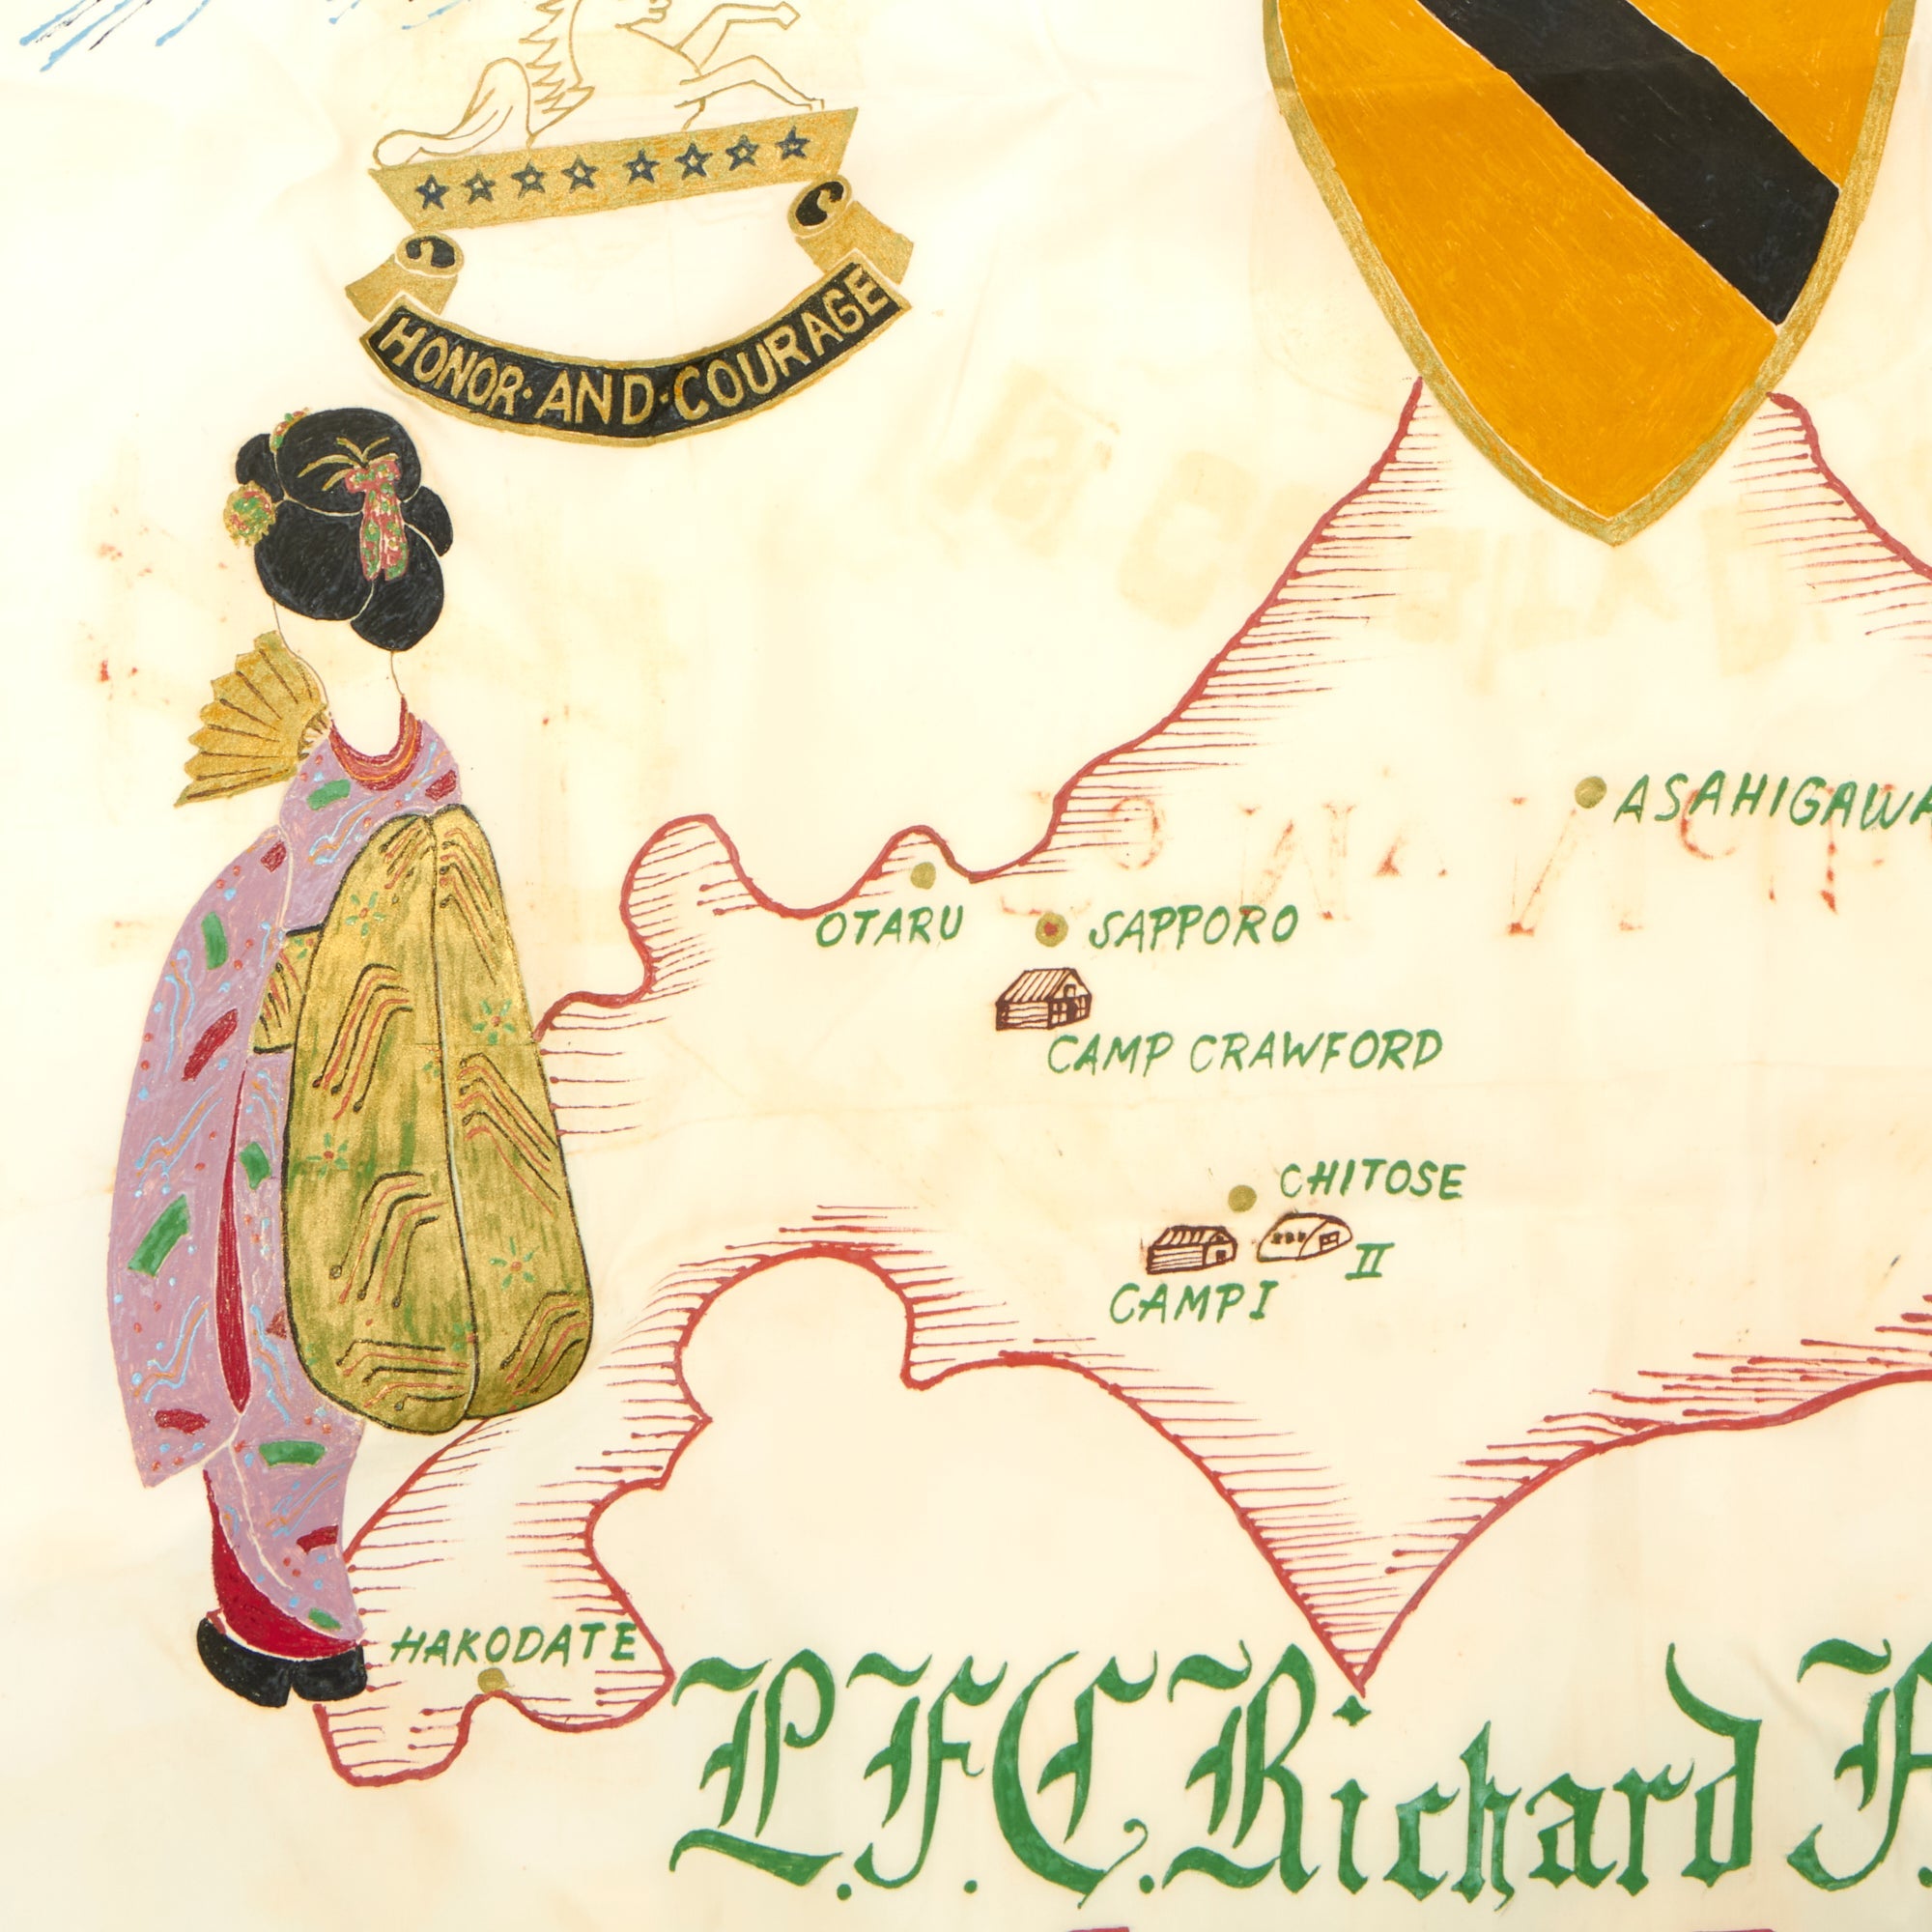 HONOR·AND·COURAGE
ASAHIGAWA
OTARU
SAPPORO
CAMP CRAWFORD
CHITOSE
CAMP I
II
HAKODATE
P.F.C. Richard